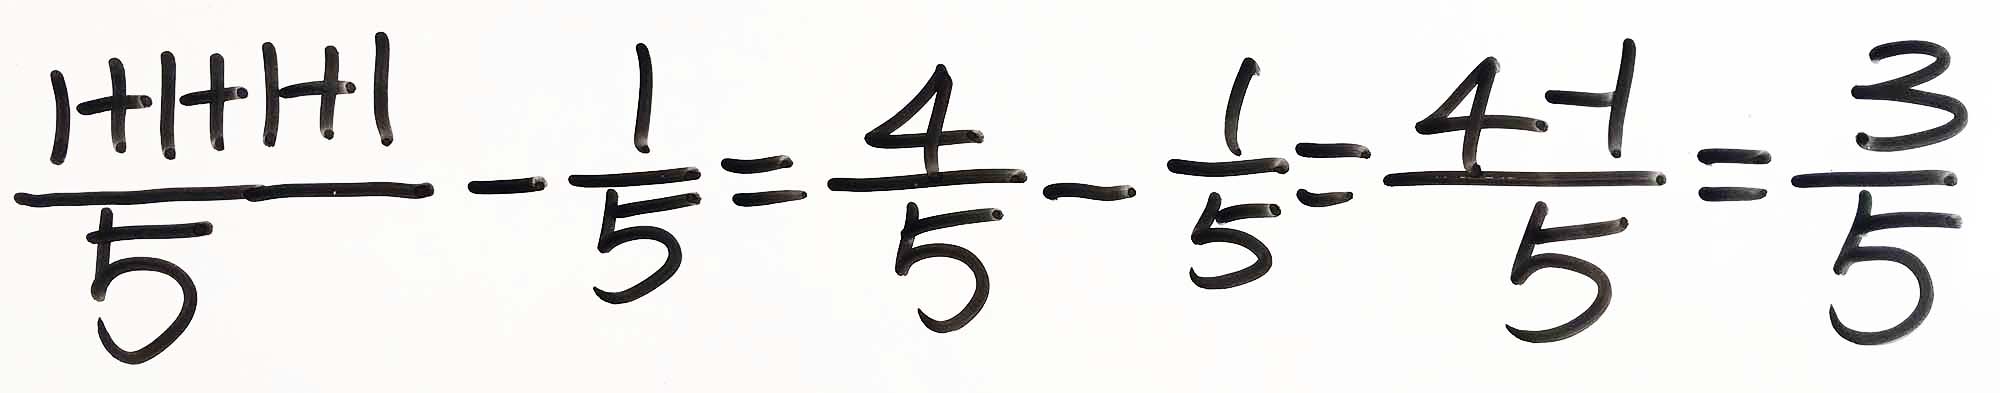 (1+1+1+1)/5 - 1/5 = 4/5 - 1/5 = (4-1)/5 = 3/5